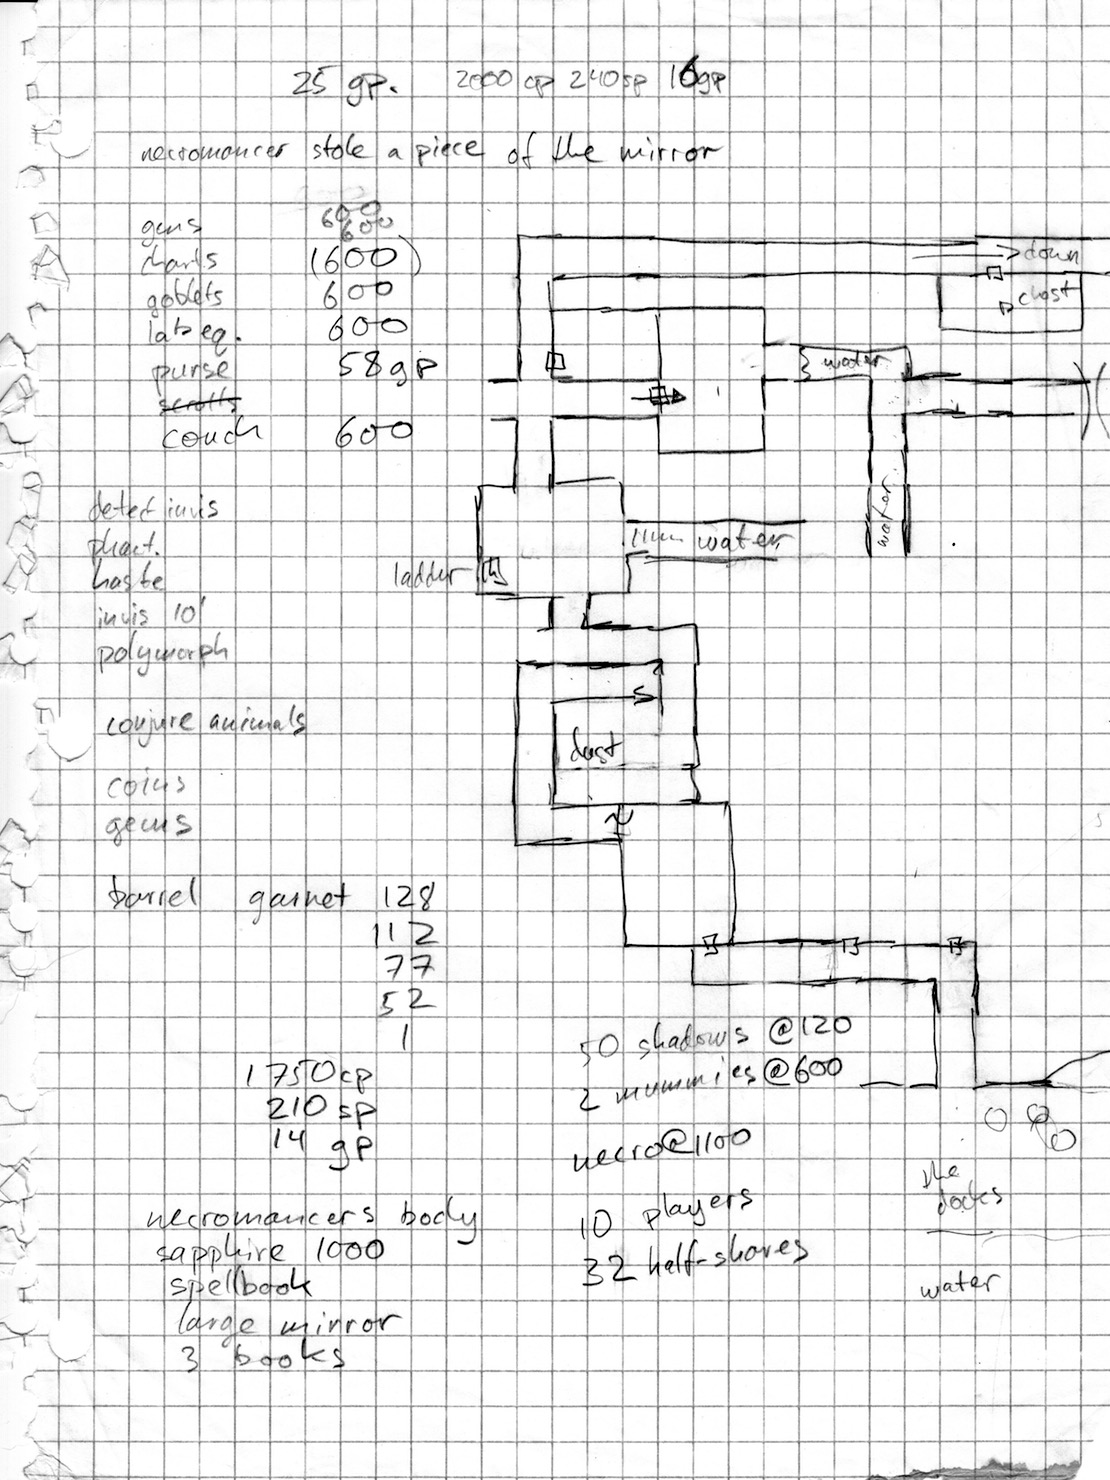 25 gp. 2000 cp 240sp 16gp
necromancer stole a piece of the mirror
600
gems 600
charts (600)
goblets 600
lab eq. 600
purse 58gp
scrolls
couch 600
detect invis
phant.
haste
invis 10'
polymorph
conjure animals
coins
gems
barrel garnet 128
112
77
52
1
1750cp
210 sp
14 gp
necromancers body
sapphire 1000
spellbook
large mirror
3 books
down
chest
water
water
water
ladder
dust
50 shadows @120
2 mummies @600
necro@1100
10 players
32 half-shares
the
docks
water